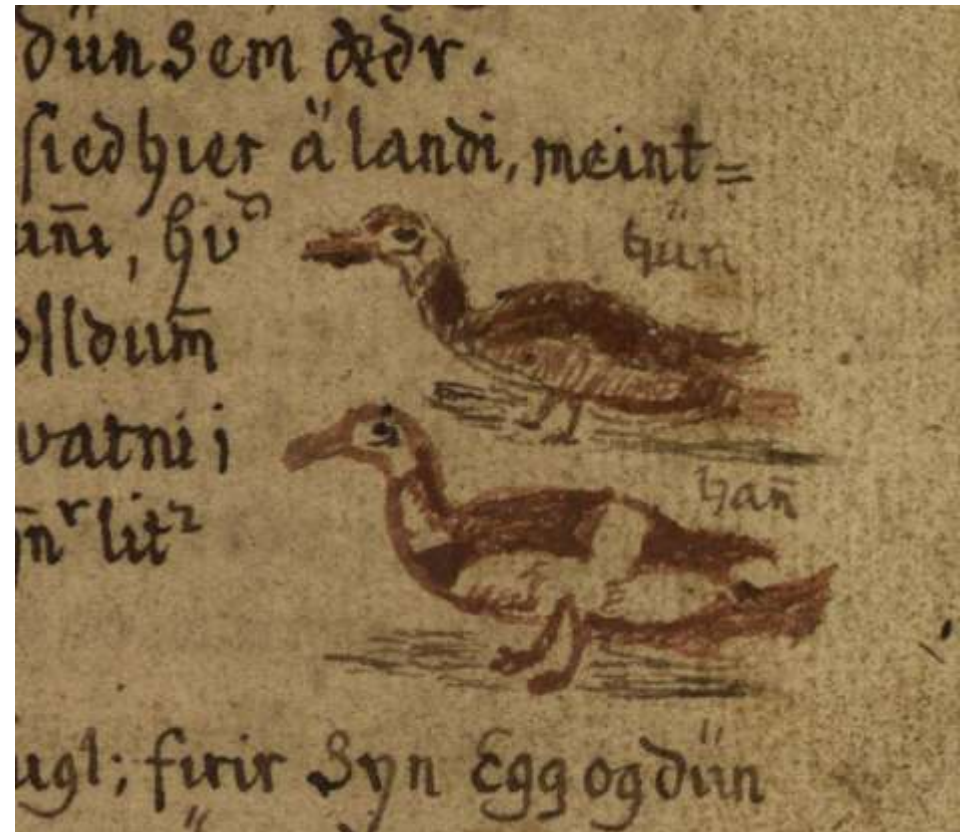 dün sem ædr.
sied hier ä landi, meint=
uñi, hv
olldum̄
hün
vatni i
n̄ʳ litᶻ
hañ
ugl; firir Syn Egg og dün